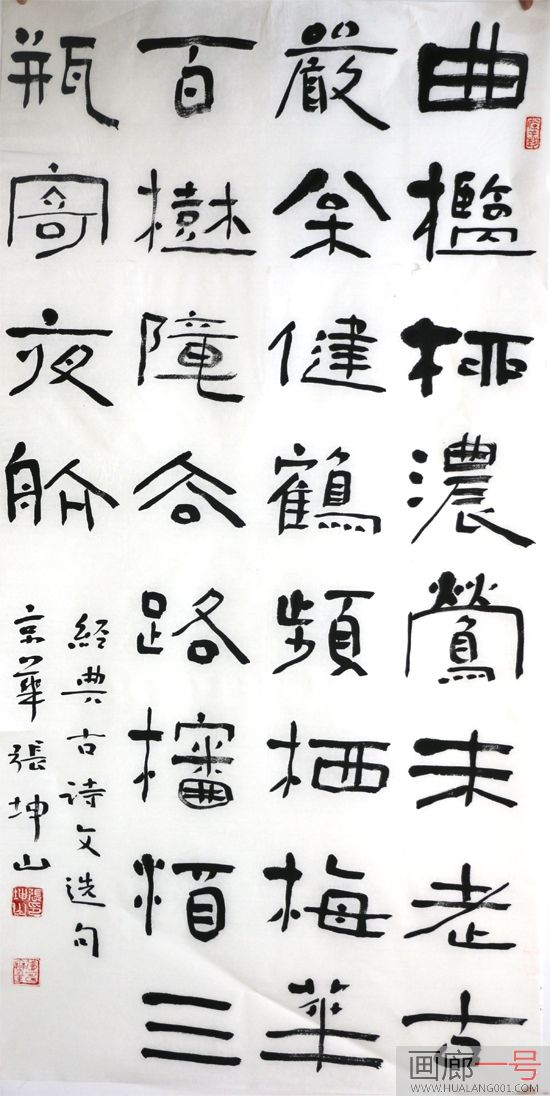 曲檻柳濃鶯未老古
嚴枀健鶴頻栖梅華
百樹障谷路三
瓶寄夜航
經典古詩文选句
京華張坤山
画廊一号
WWW.HUALANG001.COM